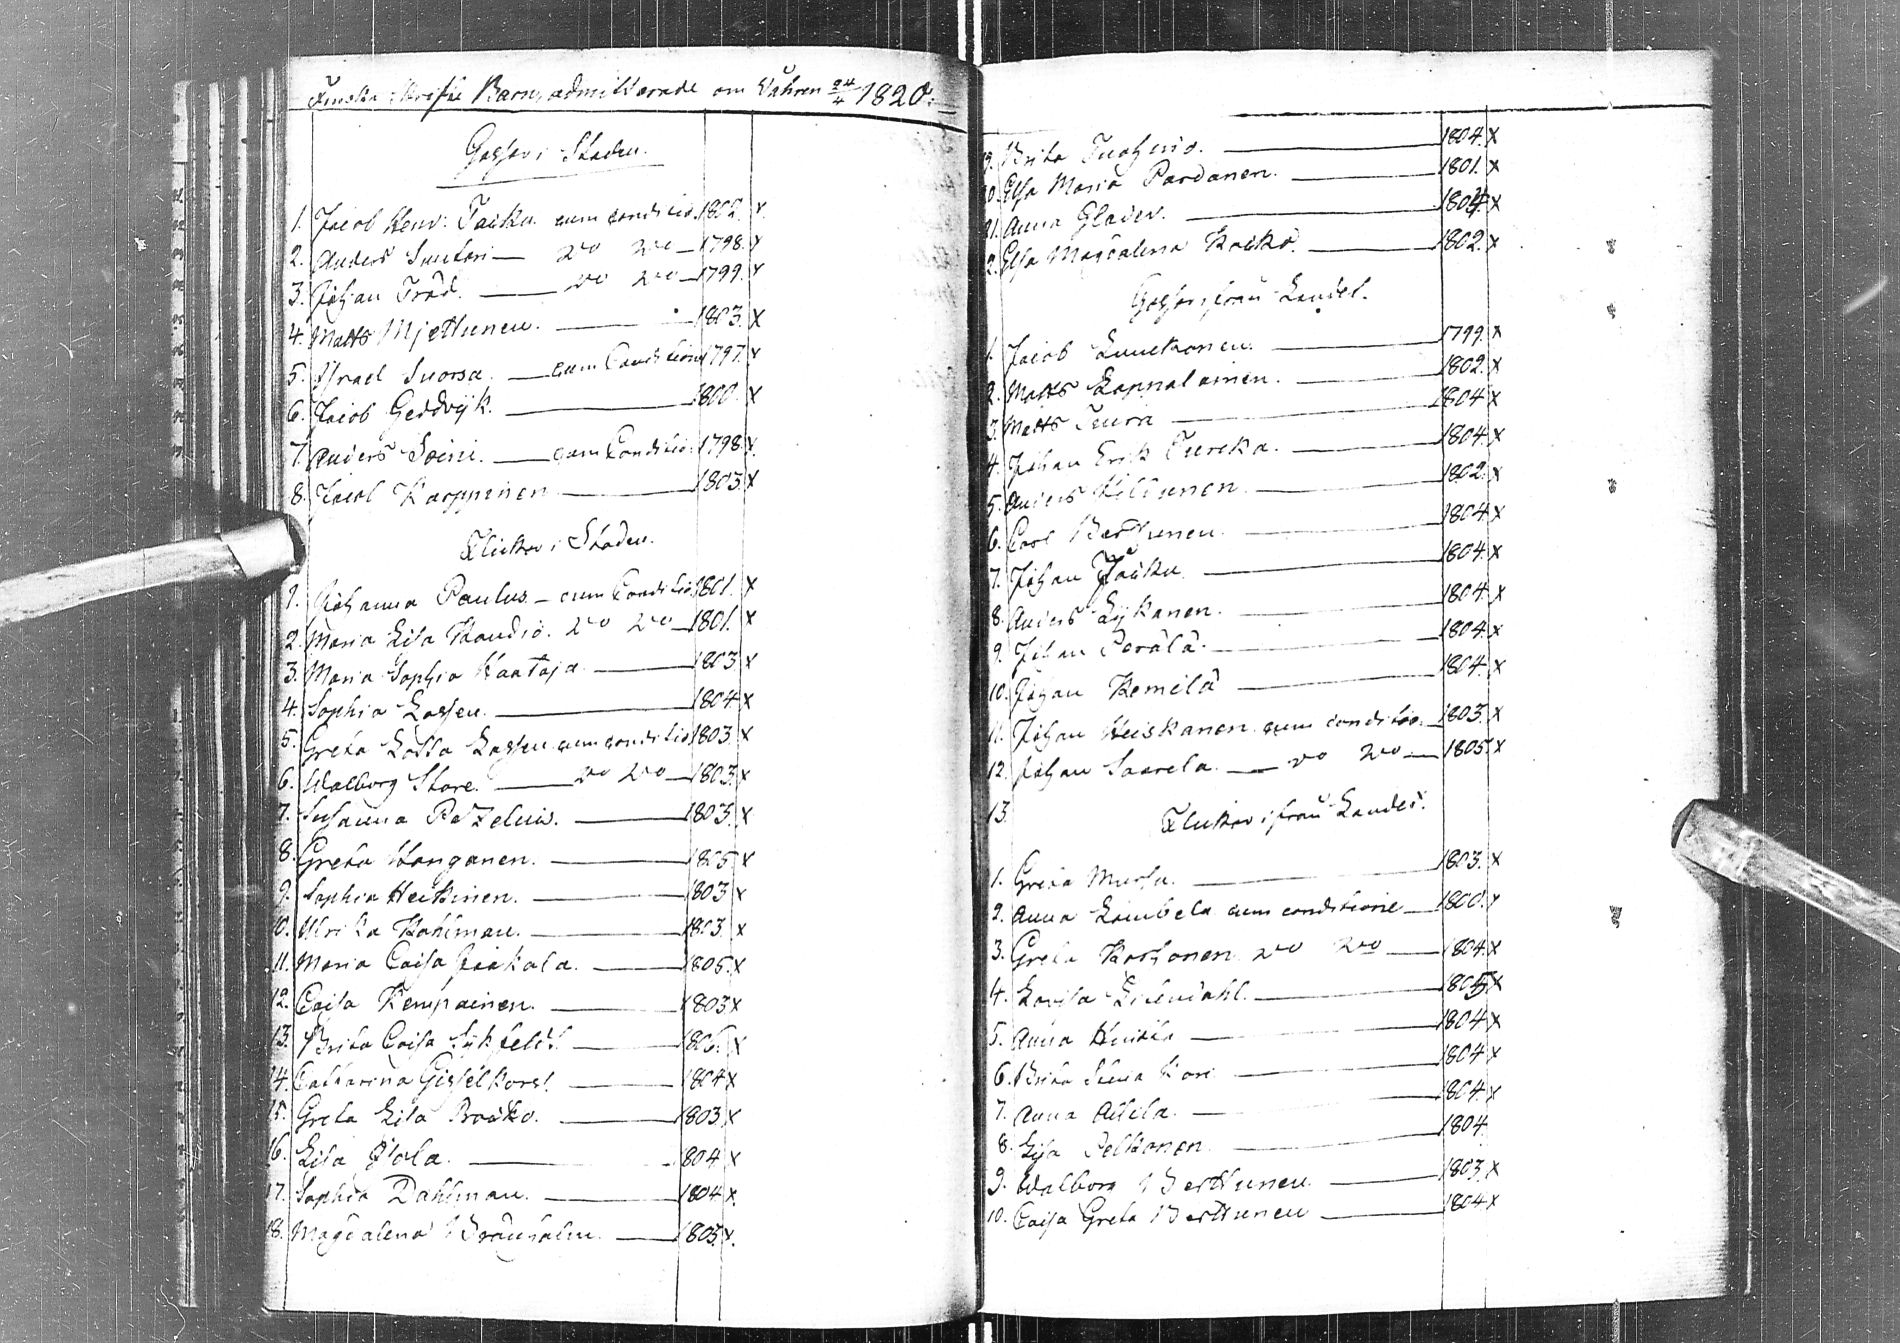 Finska Skrifte Barn, admitterade om Våhren 24/4 1820.
Gossar i Staden.
1. Jacob Henr: Tasku cum conditio. 1802. x
2. Anders Suutari — do do — 1798. x
3. Johan Tråd. — do do — 1799. x
4. Matts Mjettunen. — 1803. x
5. Israel Suorsa. — cum Condition 1797. x
6. Jacob Geddvijk. — 1800. x
7. Anders Soini. — cum Conditio. 1798. x
8. Jacob Karppinen — 1803. x
Flickor i Staden.
1. Johanna Paulus — cum Conditio 1801. x
2. Maria Lisa do do — 1801. x
3. Maria Sophia Kaataja — 1803 x
4. Sophia Lassen. — 1804 x
5. Greta Lotta Lassen cum conditio 1803. x
6. Walborg Store. — do do — 1803. x
7. Susanna Pazelius. — 1803. x
8. Greta Hanganen. — 1805 x
9. Sophia Heikinen. — 1803 x
10. Ulrika Kahlman. — 1803. x
11. Maria Caisa Jaakola. — 1805. x
12. Caisa Kempainen. — 1803 x
13. Brita Caisa — 1806. x
14. Catharina Gisselkors. — 1804 x
15. Greta Lisa — 1803. x
16. Lisa — 1804 x
17. Sophia Dahlman. — 1804 x
18. Magdalena — 1805. x
19. Brita — 1804. x
20. Elsa Maria Pardanen. — 1801. x
21. Anna — 1804. x
22. Elsa Magdalena — 1802. x
Gossar, ifrån Landet.
1. Jacob Luukkonen. — 1799. x
2. Matts Lappalainen. — 1802. x
3. Matts — 1804 x
4. Johan Erik Tureka. — 1804. x
5. Anders — 1802. x
6. Carl Berttunen. — 1804. x
7. Johan — 1804. x
8. Anders Lykanen. — 1804. x
9. Johan Perälä. — 1804. x
10. Johan Kemilä — 1804. x
11. Johan Heiskanen cum conditio. — 1803. x
12. Johan Saarela. — do do — 1805. x
13. Flickor ifrån Landet.
1. Greta Mursu. — 1803. x
2. Anna cum conditione — 1800. x
3. Greta Korhonen do do — 1804. x
4. Lovisa — 1805 x
5. Anna — 1804 x
6. Brita Stina — 1804 x
7. Anna — 1804. x
8. Lisa Pelkonen. — 1804
9. Walborg Berttunen. — 1803. x
10. Caisa Greta Berttunen — 1804 x